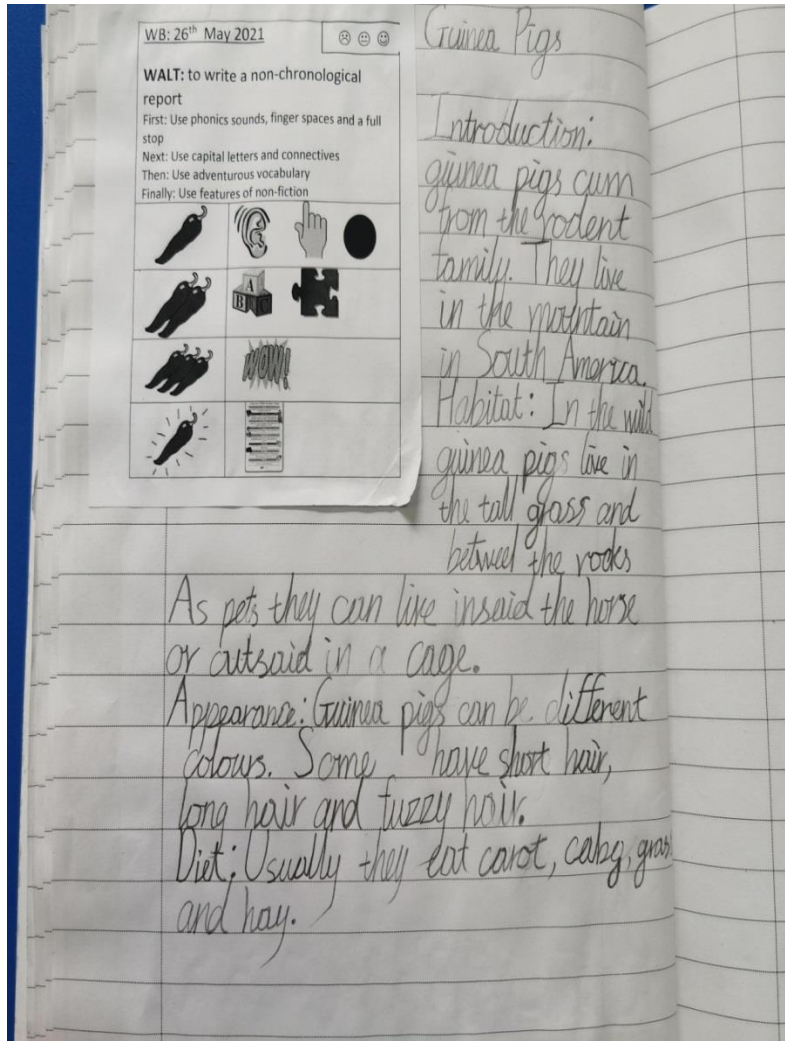 WB: 26th May 2021
WALT: to write a non-chronological
report
First: Use phonics sounds, finger spaces and a full
stop
Next: Use capital letters and connectives
Then: Use adventurous vocabulary
Finally: Use features of non-fiction
A
B C
WOW!
Guinea Pigs
Introduction:
guinea pigs cum
from the rodent
family. They live
in the mountain
in South America.
Habitat: In the wild
guinea pigs live in
the tall grass and
between the rocks
As pets they can live insaid the horse
or outsaid in a cage.
Appearance: Guinea pigs can be different
colours. Some have short hair,
long hair and fuzzy hair.
Diet: Usually they eat carot, cabg, gras
and hay.